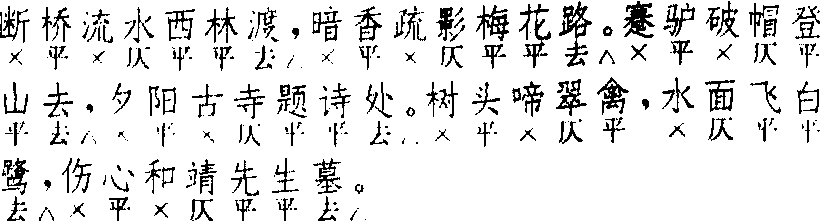 断桥流水西林渡，暗香疏影梅花路。蹇驴破帽登
×平×仄平平去△×平×仄平平去△×平×仄平
山去，夕阳古寺题诗处。树头啼翠禽，水面飞白
平去△×平×仄平平去△×平×仄平×仄平平
鹭，伤心和靖先生墓。
去△×平×仄平平去△